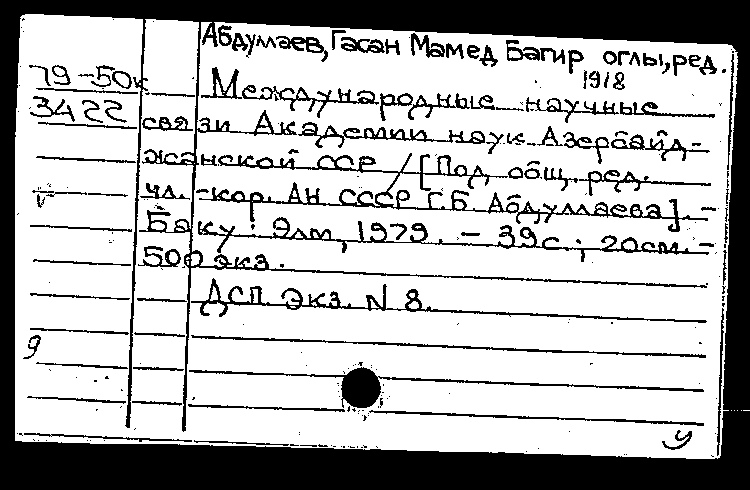 Абдуллаев, Гасан Мамед Багир оглы, ред.
1918
79-50к Международные научные
3422 связи Академии наук Азербайд-
жанской ССР / [Под общ. ред.
чл. -кор. АН СССР Г.Б. Абдуллаева]. -
Баку : Элм, 1979. - 39с. ; 20см. -
500 экз.
ДСП. Экз. N 8.
9
у